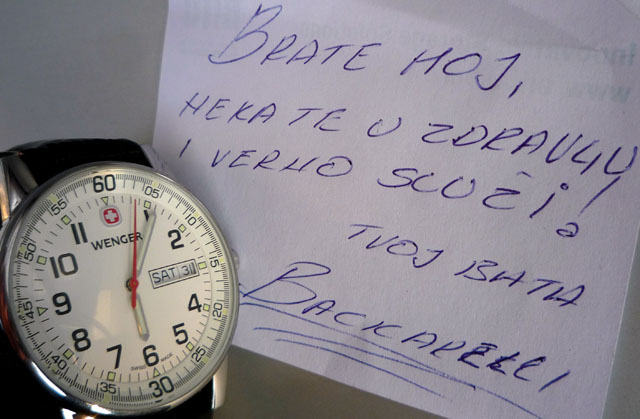 BRATE MOJ,
NEKA TE U ZDRAVLJU
I VERNO SLUŽI!
TVOJ BATA
60
05
55
11
1
2
WENGER
10
SAT 31
15
50
9
45
4
20
8
5
40
7
6
25
35
30
SWISS MADE